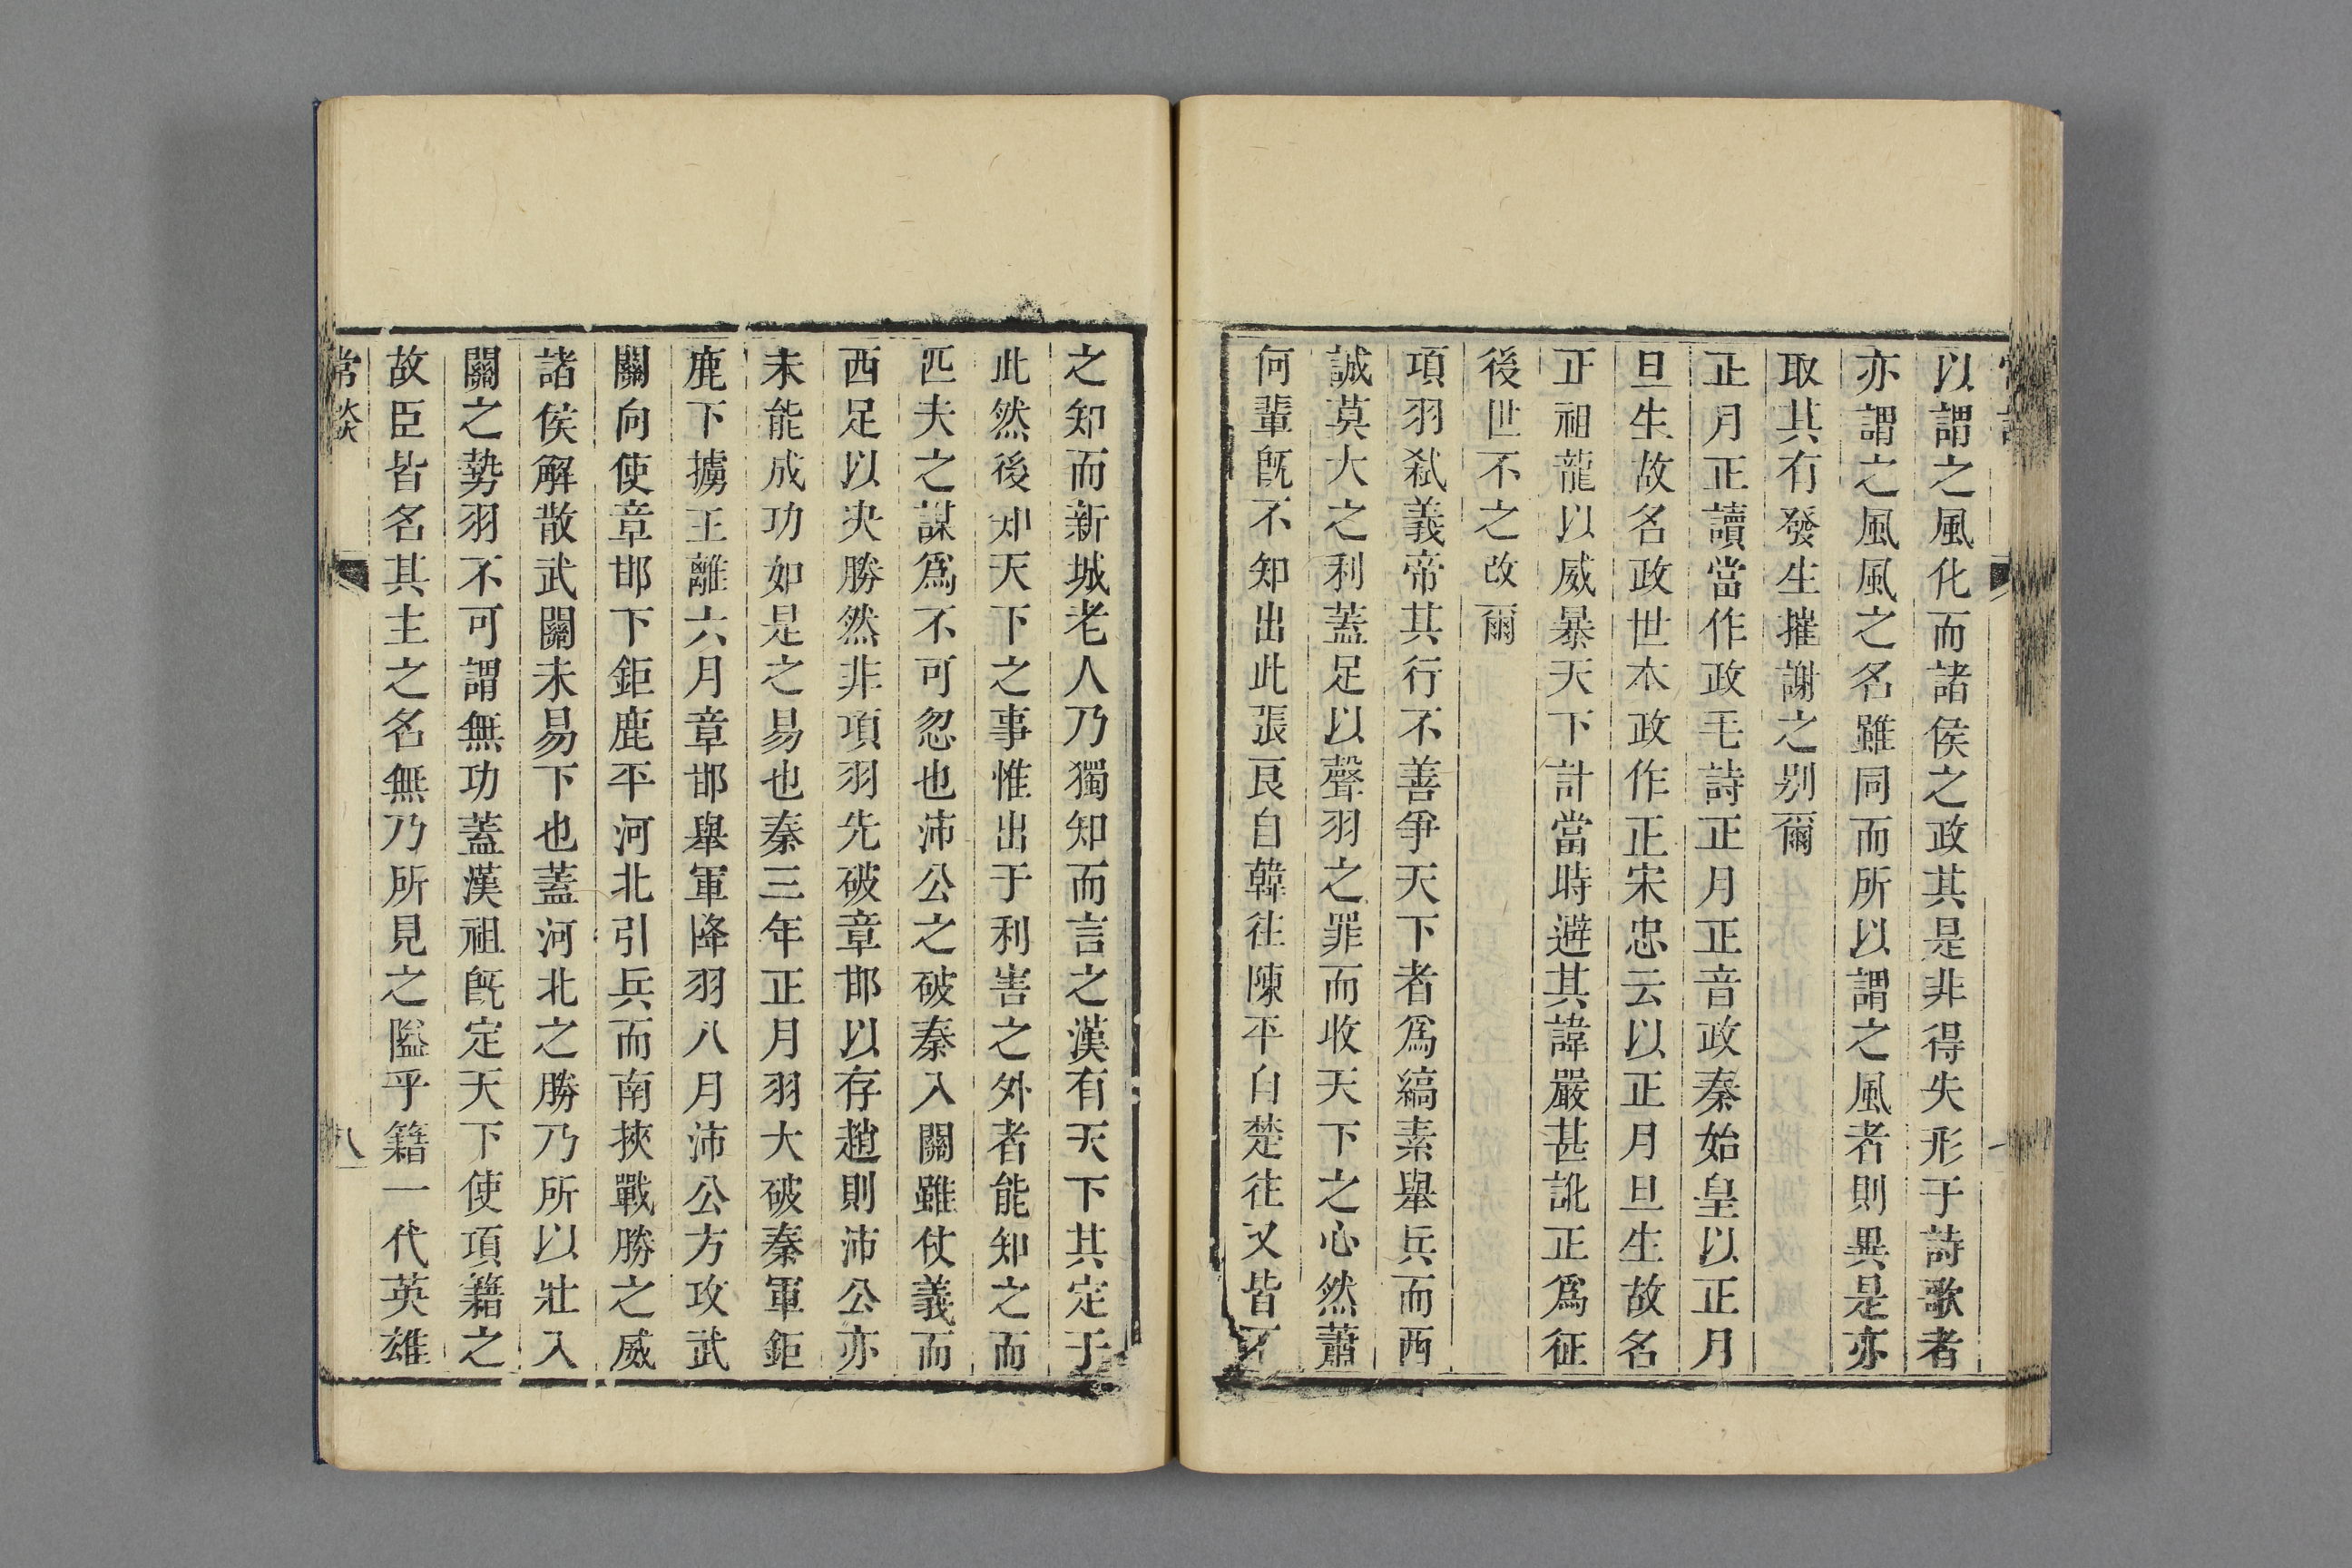 以謂之風化而諸侯之政其是非得失形于詩歌者
亦謂之風風之名雖同而所以謂之風者則異是亦
取其有發生摧謝之别爾
正月正讀當作政毛詩正月正音政秦始皇以正月
旦生故名政世本政作正宋忠云以正月旦生故名
正祖龍以威暴天下計當時避其諱嚴甚訛正爲征
後世不之改爾
項羽弑義帝其行不善爭天下者爲縞素舉兵而西
誠莫大之利蓋足以聲羽之罪而收天下之心然蕭
何輩旣不知出此張良自韓往陳平自楚往又皆不
之知而新城老人乃獨知而言之漢有天下其定于
此然後知天下之事惟出于利害之外者能知之而
匹夫之謀爲不可忽也沛公之破秦入關雖仗義而
西足以决勝然非項羽先破章邯以存趙則沛公亦
未能成功如是之易也秦三年正月羽大破秦軍鉅
鹿下擄王離六月章邯舉軍降羽八月沛公方攻武
關向使章邯下鉅鹿平河北引兵而南挾戰勝之威
諸侯解散武關未易下也蓋河北之勝乃所以壯入
關之勢羽不可謂無功蓋漢祖旣定天下使項籍之
故臣皆名其主之名無乃所見之隘乎籍一代英雄
常談
八